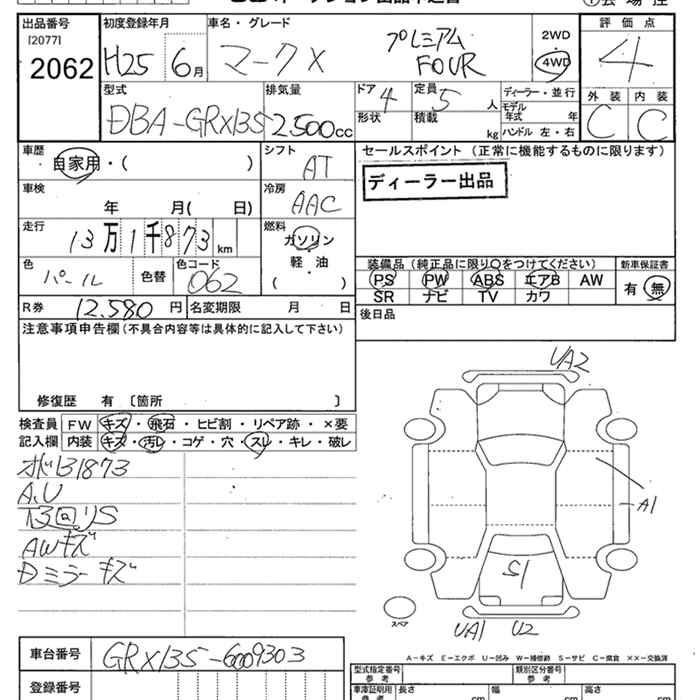 出品番号 初度登録年月 車名・グレード 評価点
[2077]
2062 H25 6月 マークX プレミアム FOUR 2WD 4WD 4
型式 排気量 ドア 定員 ディーラー・並行 外装 内装
DBA-GRX135 2,500cc 4 5人 モデル年式 年 C C
形状 積載 kg ハンドル 左・右
車歴 シフト セールスポイント (正常に機能するものに限ります)
自家用・( ) AT
ディーラー出品
車検 冷房
年 月( 日) AAC
走行 燃料
13万1千873km ガソリン
軽・油
( )
装備品 (純正品に限り○をつけてください) 新車保証書
色 色替 色コード PS PW ABS エアB AW 有 無
パール 062 SR ナビ TV カワ
R券 12,580円 名変期限 月 日 後日品
注意事項申告欄 (不具合内容等は具体的に記入して下さい)
修復歴 有 [箇所 ]
検査員 FW キズ・飛石・ヒビ割・リペア跡・×要
記入欄 内装 キズ・汚レ・コゲ・穴・スレ・キレ・破レ
131873
A.U
AWキズ
Dミラーキズ
UA2
A1
S1
UA1 U2
スペア
車台番号 GRX135-6009303
A-キズ E-エクボ U-凹み W-補修跡 S-サビ C-腐食 ××-交換済
登録番号
型式指定番号 類別区分番号
参考 参考
車庫証明用 長さ 幅 高さ
参考 cm cm cm